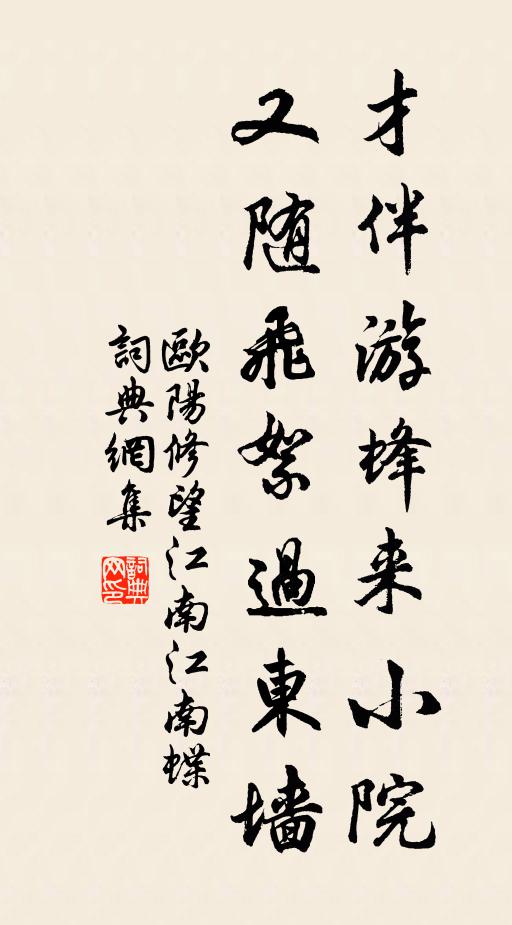 才伴游蜂来小院
又随飛絮過東墙
歐陽修望江南江南蝶
詞典網集
詞典
网印